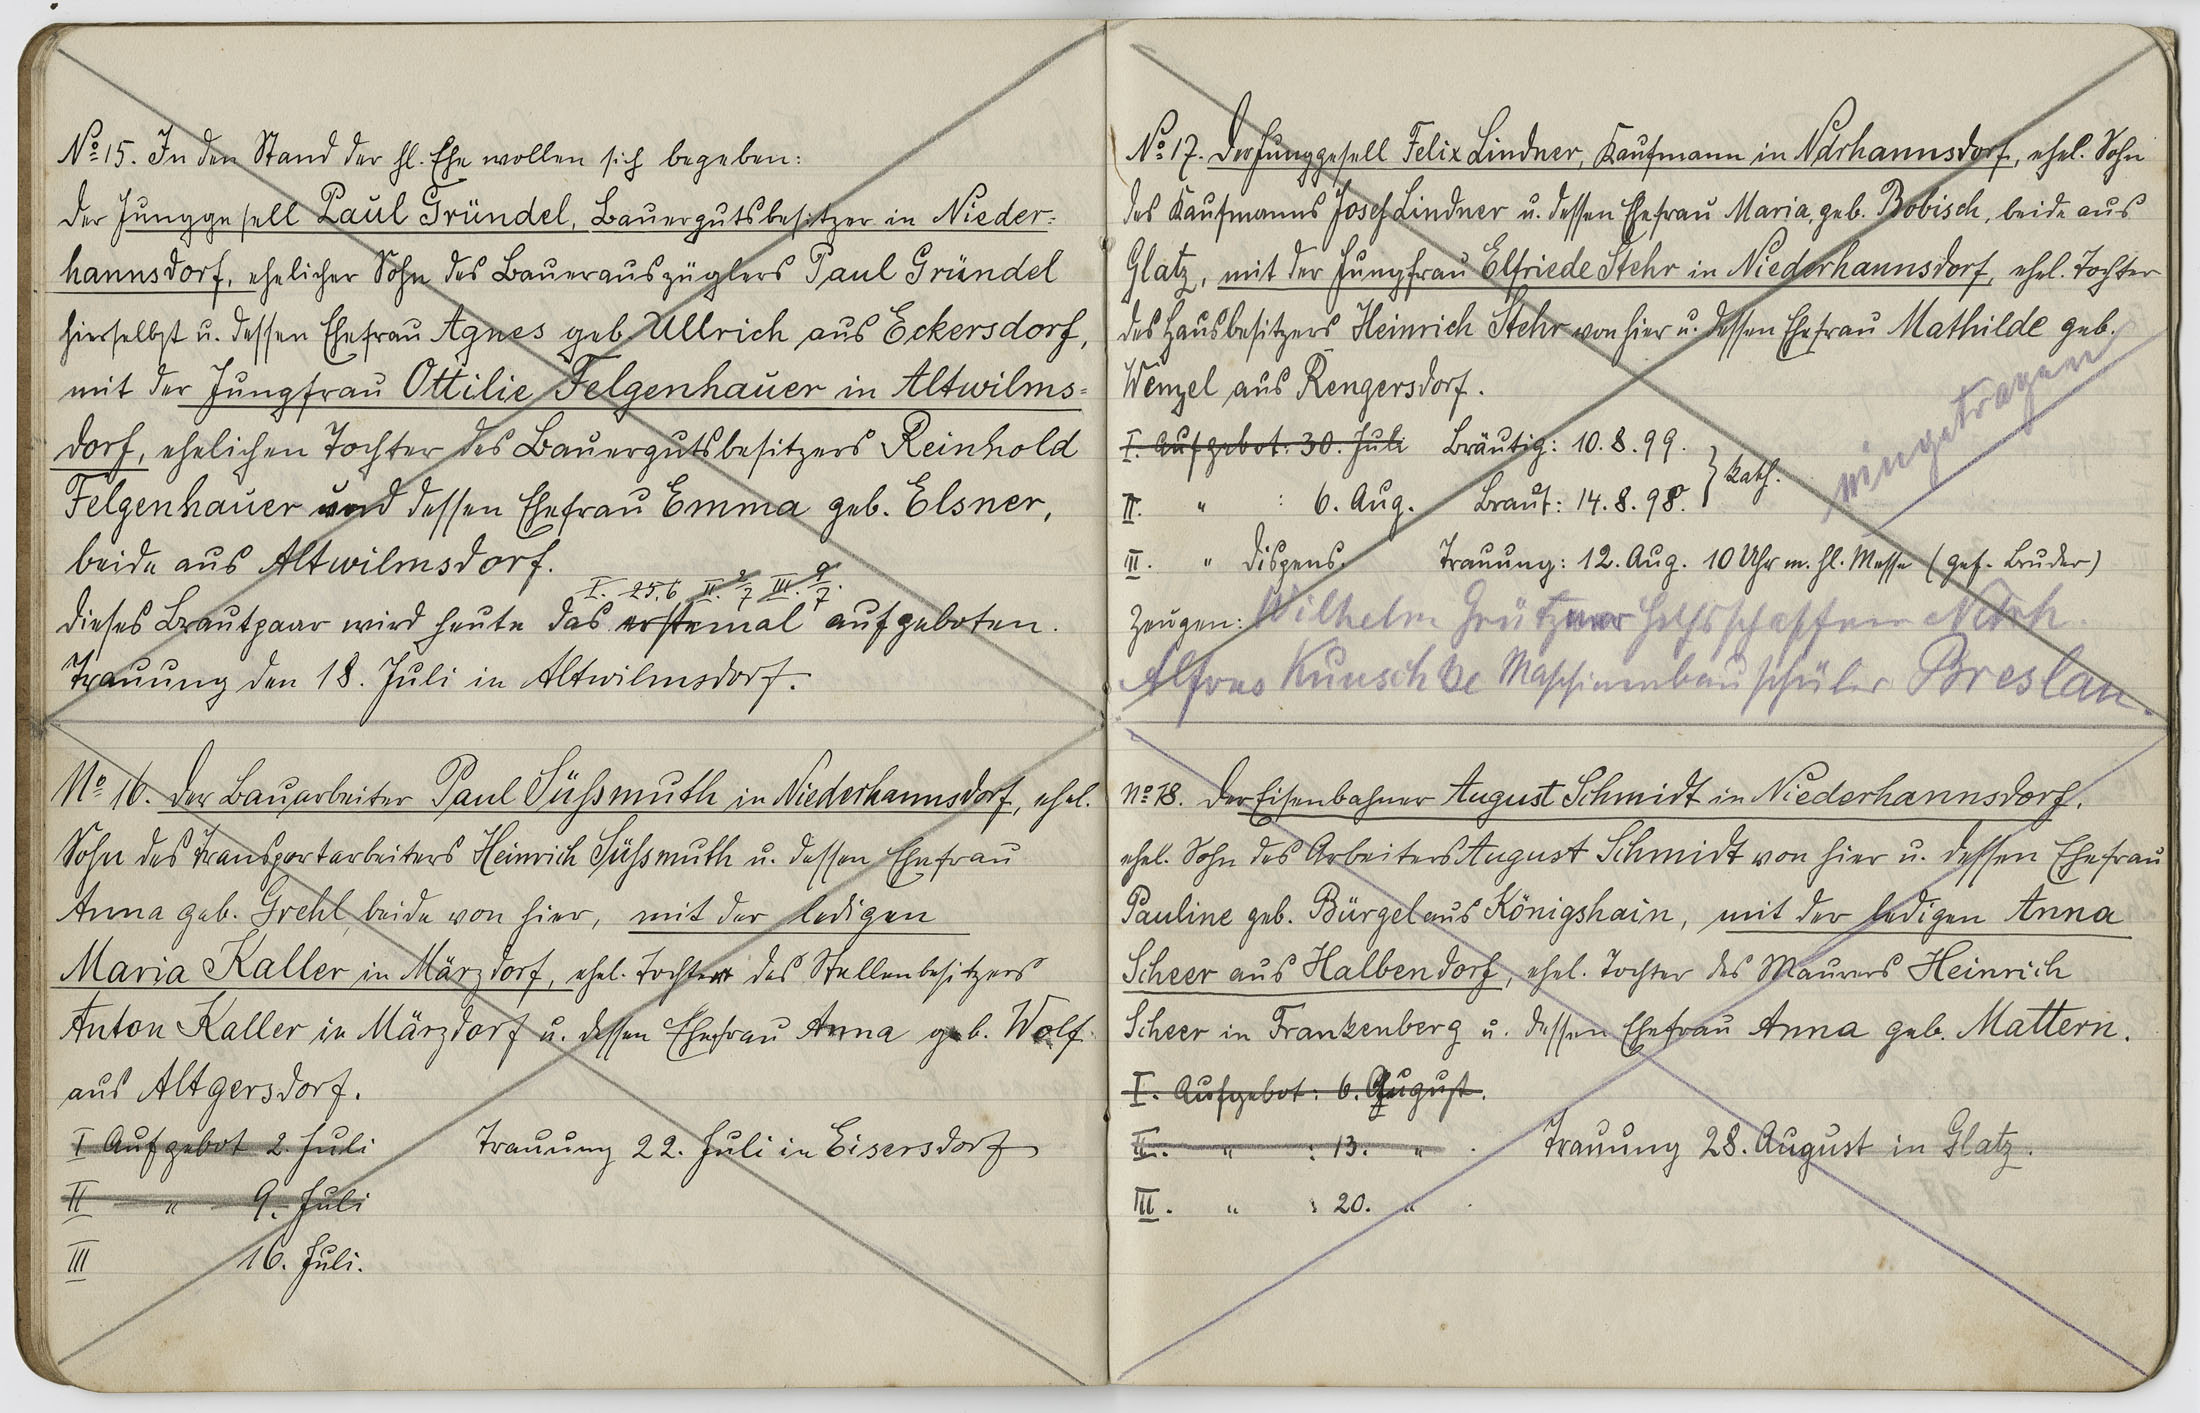 No 15. In den Stand der hl. Ehe wollen sich begeben:
Der Junggesell Paul Gründel, Bauergutsbesitzer in Nieder-
hannsdorf, ehelicher Sohn des Bauerauszüglers Paul Gründel
hierselbst u. dessen Ehefrau Agnes geb. Ullrich aus Eckersdorf,
mit der Jungfrau Ottilie Felgenhauer in Altwilms-
dorf, ehelichen Tochter des Bauergutsbesitzers Reinhold
Felgenhauer und dessen Ehefrau Emma geb. Elsner,
beide aus Altwilmsdorf.
I. 25.6 II. 2/7 III. 9/7.
Dieses Brautpaar wird heute das erstemal aufgeboten.
Trauung den 18. Juli in Altwilmsdorf.
No 16. Der Bauarbeiter Paul Süßmuth in Niederhannsdorf, ehel.
Sohn des Transportarbeiters Heinrich Süßmuth u. dessen Ehefrau
Anna geb. Grehl, beide von hier, mit der ledigen
Maria Kaller in Märzdorf, ehel. Tochter des Stellenbesitzers
Anton Kaller in Märzdorf u. dessen Ehefrau Anna geb. Wolf
aus Altgersdorf.
I Aufgebot 2. Juli Trauung 22. Juli in Eisersdorf
II " 9. Juli
III 16. Juli.
No 17. Der Junggesell Felix Lindner, Kaufmann in Ndrhannsdorf, ehel. Sohn
des Kaufmanns Josef Lindner u. dessen Ehefrau Maria, geb. Bobisch, beide aus
Glatz, mit der Jungfrau Elfriede Stehr in Niederhannsdorf, ehel. Tochter
des Hausbesitzers Heinrich Stehr von hier u. dessen Ehefrau Mathilde geb.
Wenzel aus Rengersdorf.
I. Aufgebot: 30. Juli Bräutig: 10.8.99.
II. " : 6. Aug. Braut: 14.8.98. } kath.
eingetragen
III. " Dispens. Trauung: 12. Aug. 10 Uhr m. hl. Messe (gef. Bruder)
Zeugen: Wilhelm Grützner
Alfons Kunschke Maschinenbauschüler Breslau.
No 18. Der Eisenbahner August Schmidt in Niederhannsdorf,
ehel. Sohn des Arbeiters August Schmidt von hier u. dessen Ehefrau
Pauline geb. Bürgel aus Königshain, mit der ledigen Anna
Scheer aus Halbendorf, ehel. Tochter des Maurers Heinrich
Scheer in Frankenberg u. dessen Ehefrau Anna geb. Mattern.
I. Aufgebot: 6. August.
II. " : 13. " . Trauung 28. August in Glatz.
III. " : 20. " .